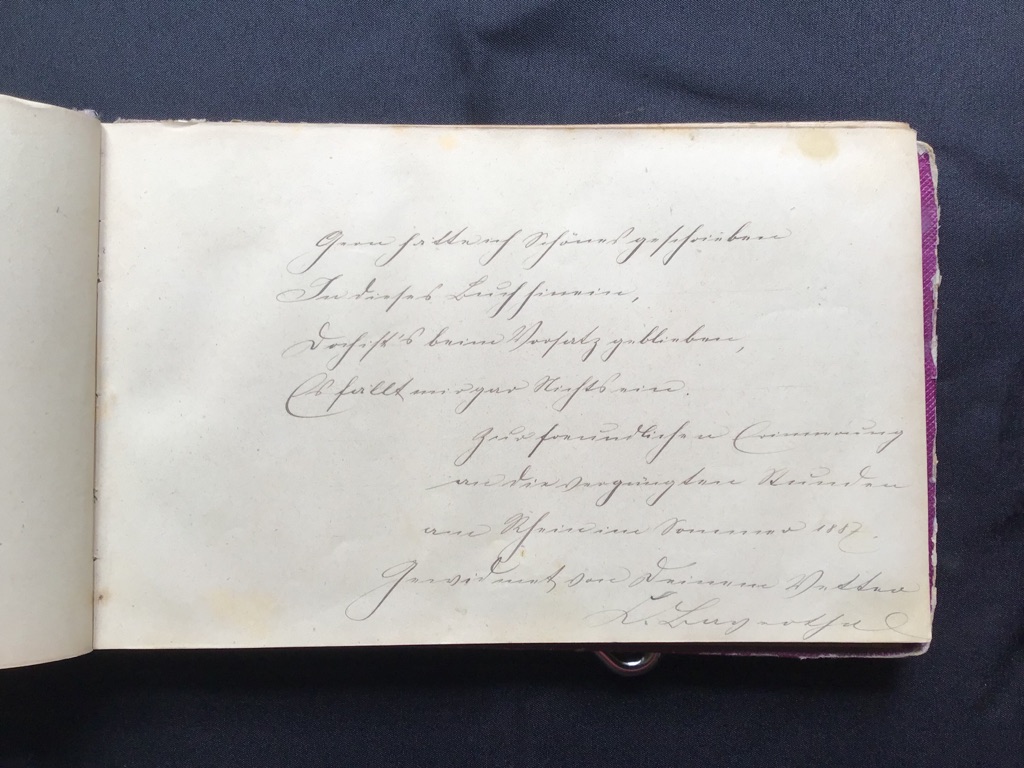 Gern hätte ich Schönes geschrieben
In dieses Buch hinein,
Doch ist's beim Vorsatz geblieben,
Es fällt mir gar Nichts ein.
Zur freundlichen Erinnerung
an die vergnügten Stunden
am Rhein im Sommer 1887.
Gewidmet von Deinem Vetter
L. Bayerthal